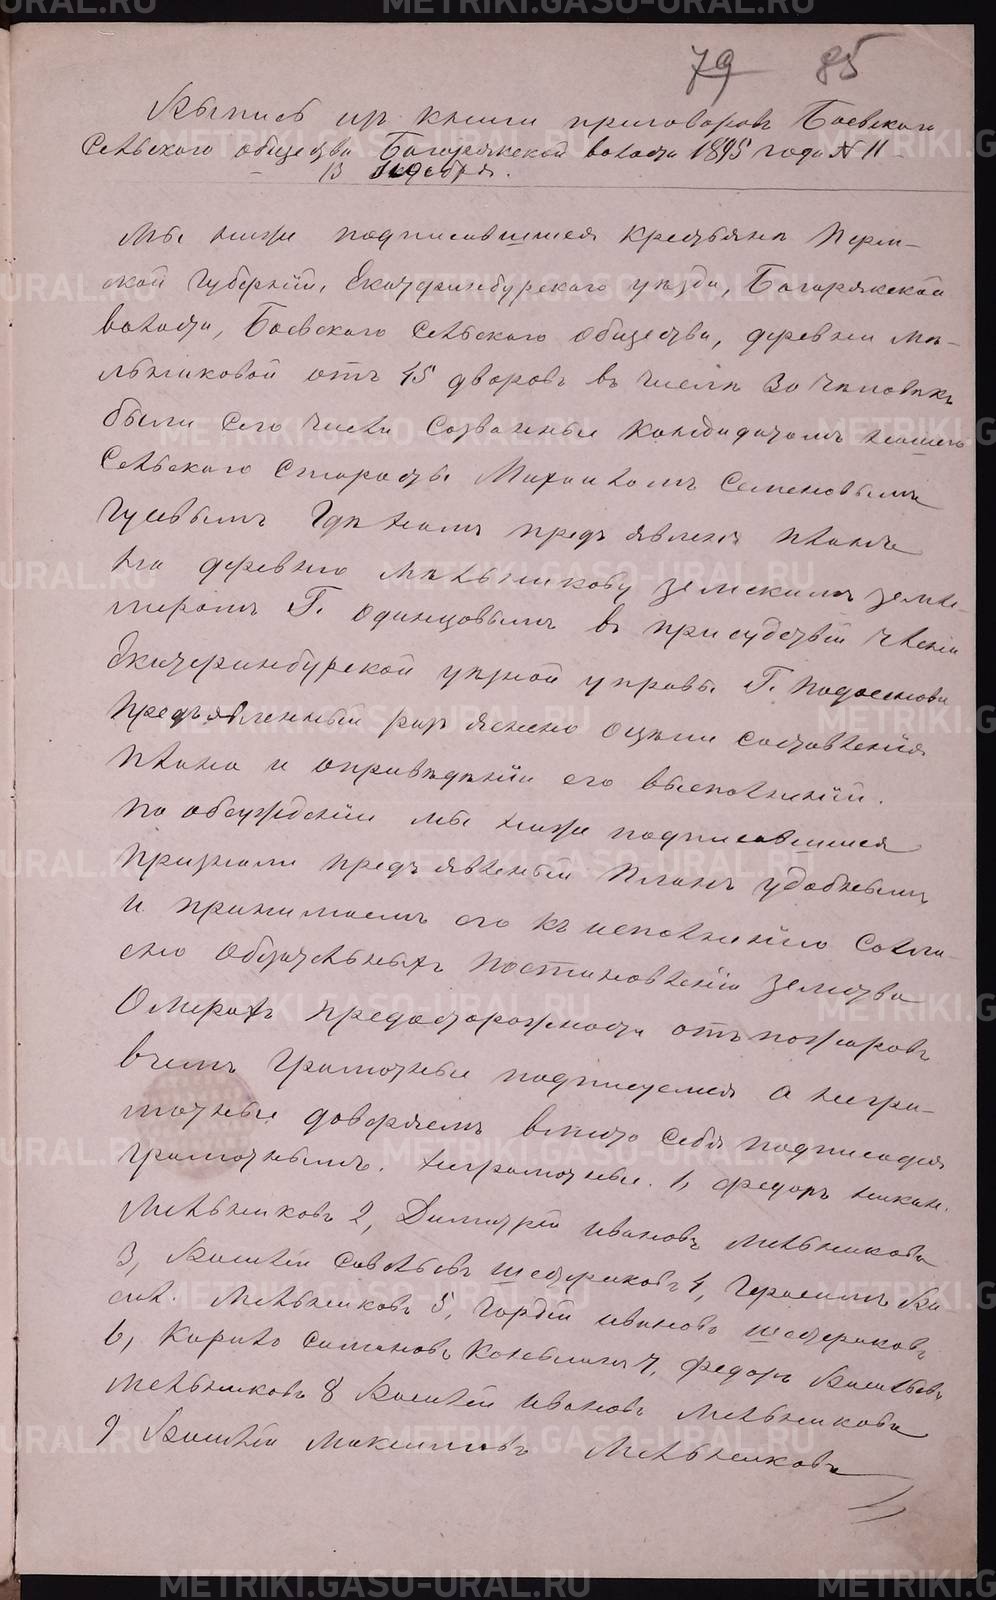 79 85
Выпись изъ книги приговоровъ Боевскаго
Сельскаго общества Багарякской волости 1895 года № 11
13 Декабря.
Мы ниже подписавшиеся крестьяне Перм-
ской губернiи, Екатеринбурскаго уезда, Багарякской
волости, Боевскаго Сельскаго общества, деревни Мѣ-
льниковой отъ 45 дворовъ въ числѣ 30 человѣкъ
были сего числа созванные кандидатомъ нашего
Сельскаго Старосты Михаиломъ Семеновымъ
Гусевымъ Гдѣ намъ предъявленъ планъ
на деревню Мѣльникову земскимъ земле-
мѣромъ Г. Одинцовымъ въ присудствiи члена
Екатеринбурской уѣзной управы Г.
Предъявленный разъяснено оцели составленiя
плана и оправѣдѣнiи его выполненiи.
По обсужденiи мы ниже подписавшиеся
признали предъявленый планъ удобнымъ
и принимаемъ его къ исполненiю Согла-
сно Обязательныхъ постановленiй земства
Омерахъ предосторожности отъ пожаровъ
вчемъ грамотные подписуемся а негра-
мотные доверяемъ вместо себя подписатся
грамотнымъ. Неграмотные. 1, Федоръ Никан.
Мельниковъ 2, Димитрiй Ивановъ Мельниковъ
3, Василiй Савельевъ Шебериковъ 4, Герасимъ Ва-
сил. Мельниковъ 5, Гордѣй Ивановъ Шебериковъ
6, Кирило Симоновъ 7, Федоръ Васильевъ
Мельниковъ 8 Василiй Ивановъ Мельниковъ
9 Василiй Максимовъ Мельниковъ
METRIKI.GASO-URAL.RU